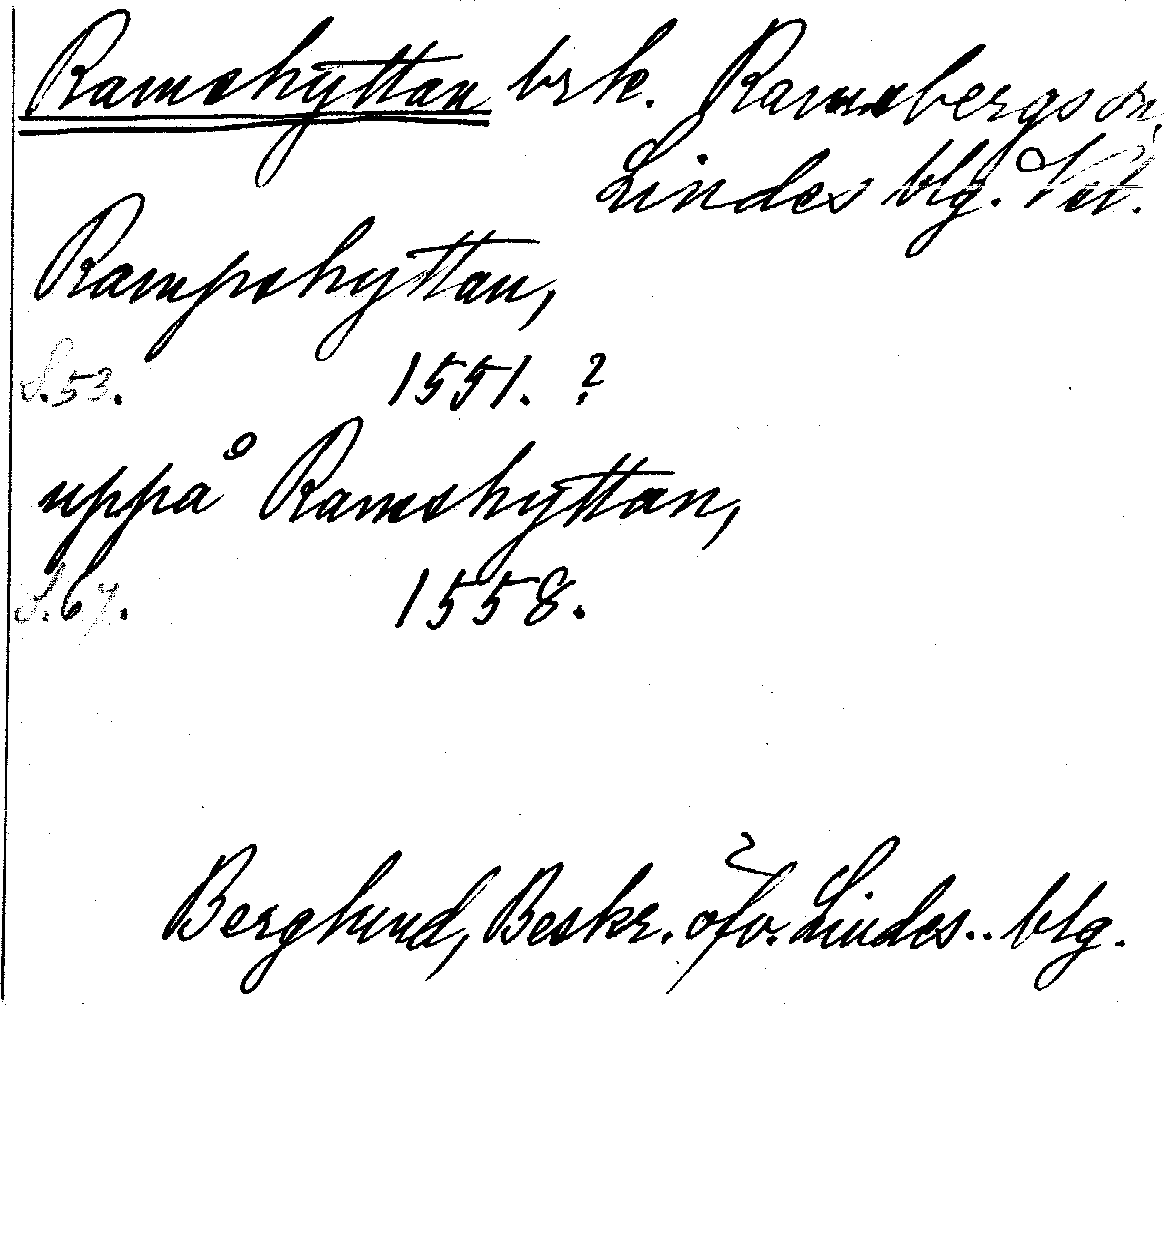 Ramshyttan brk. Ramsbergs sn.
Lindes blg. Vstl.
Rampshyttan,
S. 53. 1551. ?
uppå Ramshyttan,
S. 67. 1558.
Berglund, Beskr. öfv. Lindes.. blg.